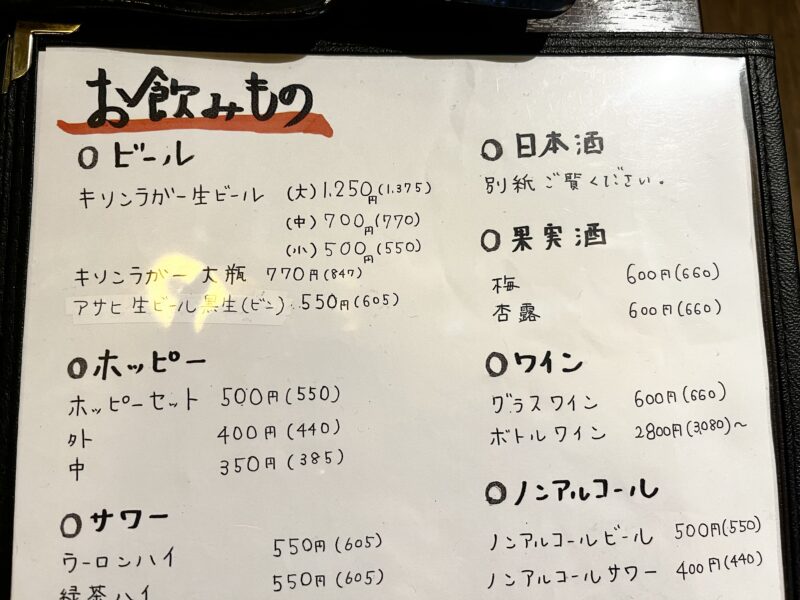 お飲みもの
○ ビール
キリンラガー生ビール (大) 1,250円(1.375)
(中) 700円(770)
(小) 500円(550)
キリンラガー 大瓶 770円(847)
アサヒ 生ビール 黒生(ビン) 550円(605)
○ ホッピー
ホッピーセット 500円(550)
外 400円(440)
中 350円(385)
○ サワー
ウーロンハイ 550円(605)
緑茶ハイ 550円(605)
○ 日本酒
別紙ご覧ください。
○ 果実酒
梅 600円(660)
杏露 600円(660)
○ ワイン
グラスワイン 600円(660)
ボトルワイン 2800円(3,080)～
○ ノンアルコール
ノンアルコールビール 500円(550)
ノンアルコールサワー 400円(440)